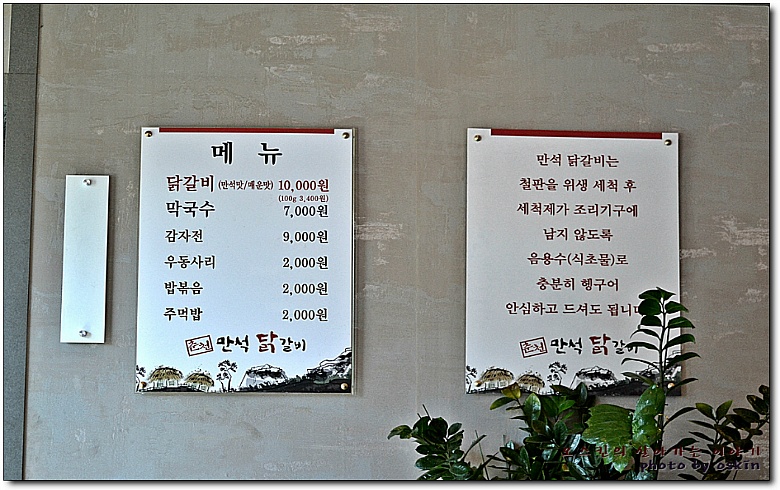 메 뉴
닭갈비 (만석맛/매운맛) 10,000원
(100g 3,400원)
막국수 7,000원
감자전 9,000원
우동사리 2,000원
밥볶음 2,000원
주먹밥 2,000원
춘천 만석 닭갈비
만석 닭갈비는
철판을 위생 세척 후
세척제가 조리기구에
남지 않도록
음용수(식초물)로
충분히 헹구어
안심하고 드셔도 됩니다
춘천 만석 닭갈비
살아가는 이야기
photo by oskin